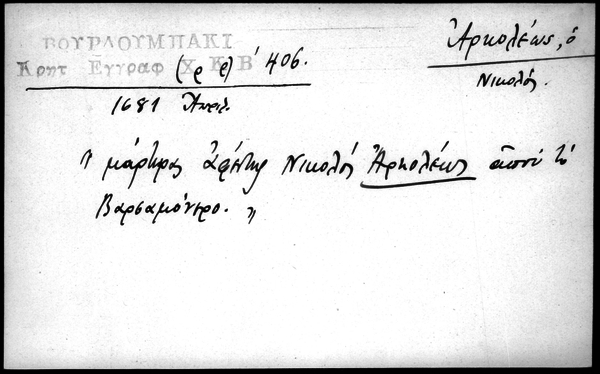 ΒΟΥΡΛΟΥΜΠΑΚΙ
Κρητ Εγγραφ Χ Κ Β
(ρρ)' 406.
Ἀρκολέως, ὁ
Νικολός.
1681 Ἀπριλ.
" μάρτυρας ἀφέντης Νικολός Ἀρκολέως ἀπού τό
Βαρσαμόνερο. "